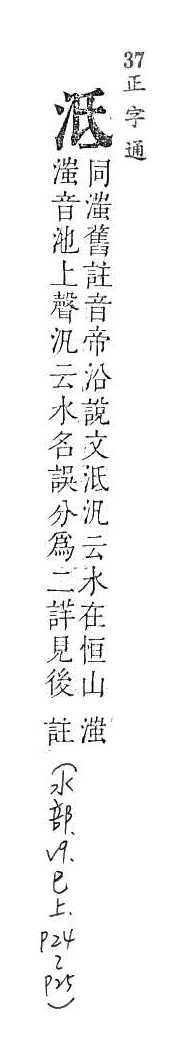 37正字通
泜
同滍舊註音帝沿說文泜汎云水在恒山
滍音池上聲汎云水名誤分爲二詳見後
滍
註
(水部.v9.巳上.P24~P25)